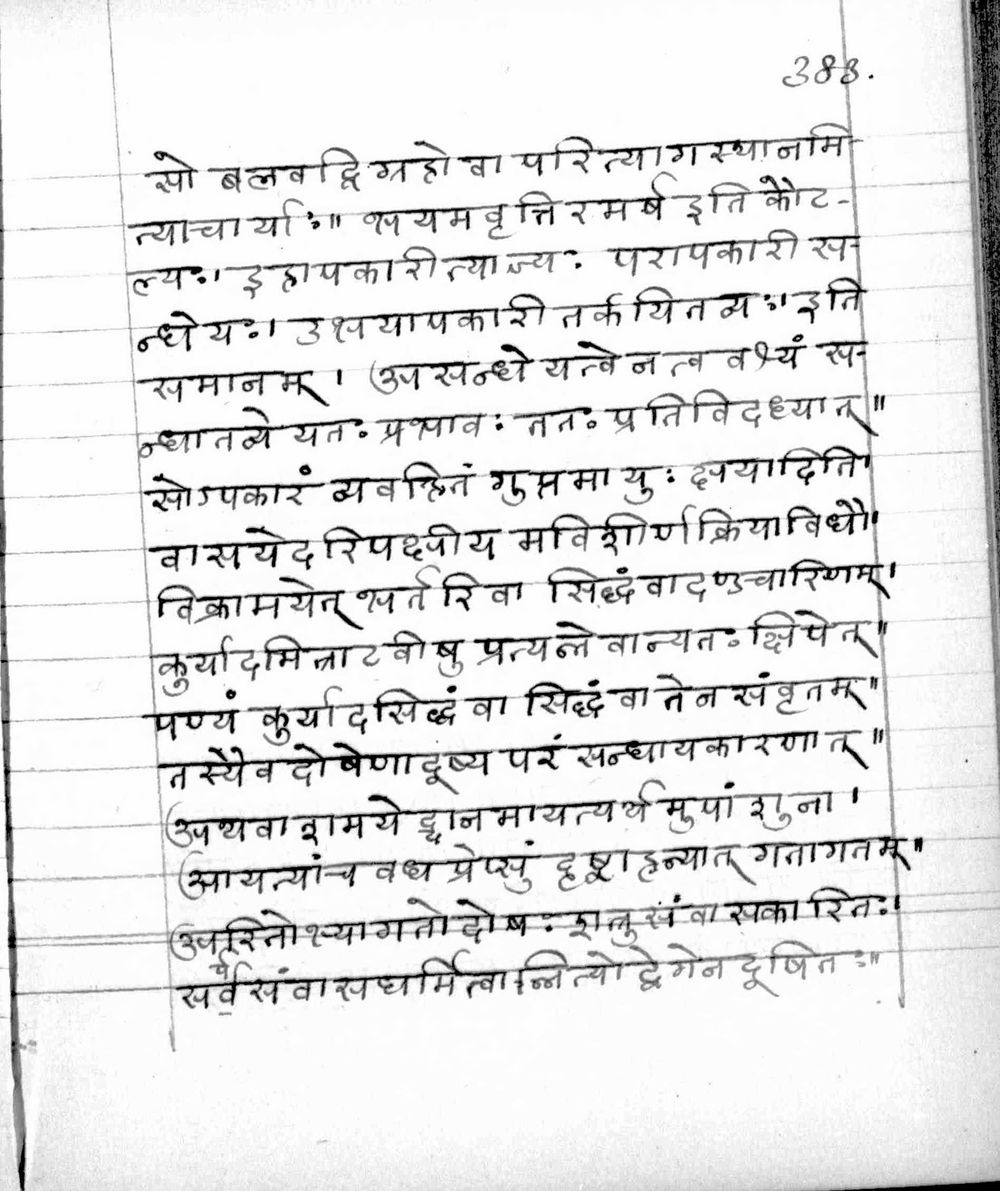 383.
सो बलवद्विग्रहो वा परित्यागस्थानमि
त्याचार्याः॥ भयमवृत्तिरमर्ष इति कौट-
ल्यः। इहापकारी त्याज्यः परापकारी स-
न्धेयः। उभयापकारी तर्कयितव्यः। इति
समानम्। असन्धेयत्वेन त्ववश्यं स-
न्धातव्ये यतः प्रभावः ततः प्रतिविदध्यात्॥
सोऽपकारं व्यवहितं गुप्तमायुः क्षयादिति।
वासयेदरिपक्षीयमविशीर्णक्रियाविधौ।
विक्रामयेत् भर्तरि वा सिद्धं वा दण्डचारिणम्।
कुर्यादमित्राटवीषु प्रत्यन्ते वान्यतः क्षिपेत्॥
पण्यं कुर्यादसिद्धं वा सिद्धं वा तेन संवृतम्॥
तस्यैव दोषेणादूष्य परं सन्धाय कारणात्॥
अथवा शमयेद्धानमायत्यर्थमुपांशुना।
आयत्यां च वध प्रेप्सुं दृष्ट्वा हन्यात् गतागतम्॥
अरितोभ्यागतो दोषः शत्रुसंवासकारितः।
सर्पसंवासधर्मित्वान्नित्योद्वेगेन दूषितः॥